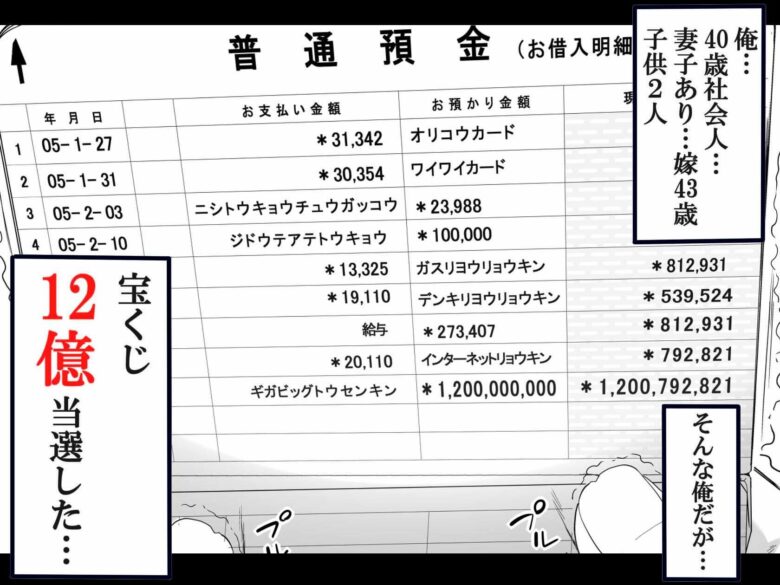 俺…
40歳社会人…
妻子あり…嫁43歳
子供２人
普通預金(お借入明細
年月日 お支払い金額 お預かり金額 現
1 05-1-27 *31,342 オリコウカード
2 05-1-31 *30,354 ワイワイカード
3 05-2-03 ニシトウキョウチュウガッコウ *23,988
4 05-2-10 ジドウテアテトウキョウ *100,000
*13,325 ガスリヨウリョウキン *812,931
*19,110 デンキリヨウリョウキン *539,524
給与 *273,407 *812,931
*20,110 インターネットリョウキン *792,821
ギガビッグトウセンキン *1,200,000,000 *1,200,792,821
宝くじ
12億当選した…
そんな俺だが…
プル
プル